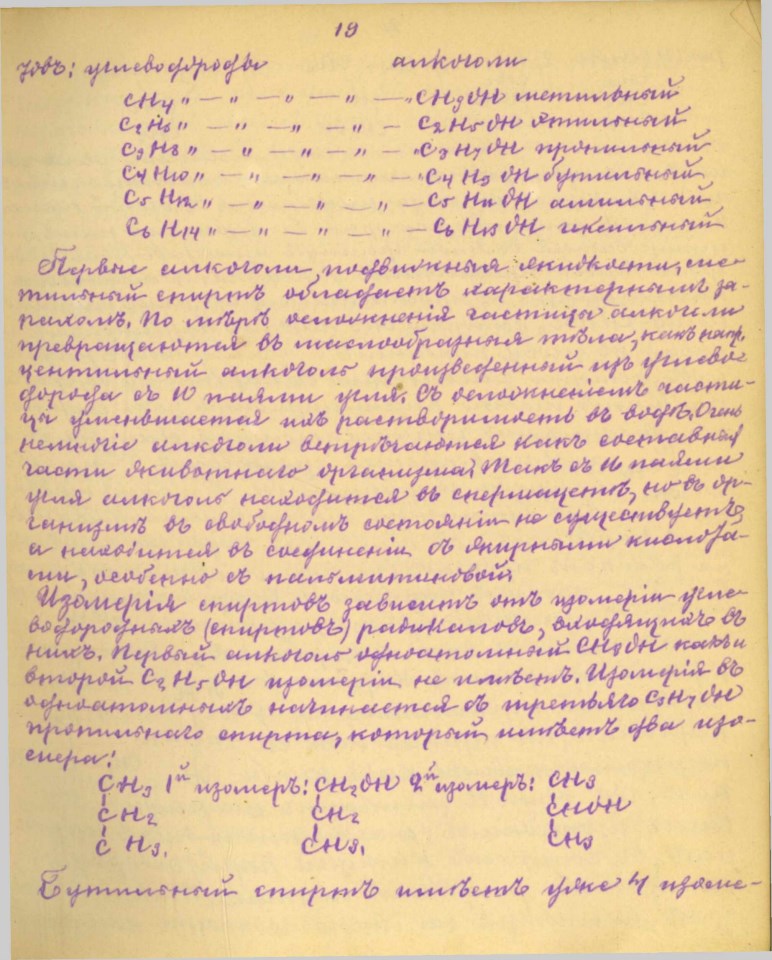 19
зовъ: углеводороды алкоголи
CH4 „ — „ — „ — „ CH3OH метильный
C2H6 „ — „ — „ — C2H5OH этильный
C3H8 „ — „ — „ — „ C3H7OH пропильный
C4H10 „ — „ — „ — C4H9OH бутильный
C5H12 „ — „ — „ — C5H11OH амильный
C6H14 „ — „ — „ — C6H13OH гексильный
Первые алкоголи, подвижныя жидкости, ме-
тильный спиртъ обладаетъ характернымъ за-
пахомъ. По мѣрѣ осложненія частицы алкоголи
превращаются въ маслообразныя тѣла, какъ напр.
цетильный алкоголь произведенный изъ углево-
дорода съ 16 паями угля. Съ осложненіемъ части-
цы уменьшается ихъ растворимость въ водѣ. Очень
немногіе алкоголи встрѣчаются какъ составныя
части животнаго организма. Такъ съ 16 паями
угля алкоголь находится въ спермацетѣ, но въ ор-
ганизмѣ въ свободномъ состояніи не существуетъ,
а находится въ соединеніи съ жирными кислота-
ми, особенно съ пальмитиновой.
Изомерія спиртовъ зависитъ отъ изомеріи угле-
водородныхъ (спиртовъ) радикаловъ, входящихъ въ
нихъ. Первый алкоголь одноатомный CH3OH какъ и
второй C2H5OH изомеріи не имѣетъ. Изомерія въ
одноатомныхъ начинается съ третьяго C3H7OH
пропильнаго спирта, который имѣетъ два изо-
мера:
CH3 1й изомеръ: CH2OH 2й изомеръ: CH3
CH2 CH2 CHOH
CH3. CH3. CH3
Бутильный спиртъ имѣетъ уже 4 изоме-